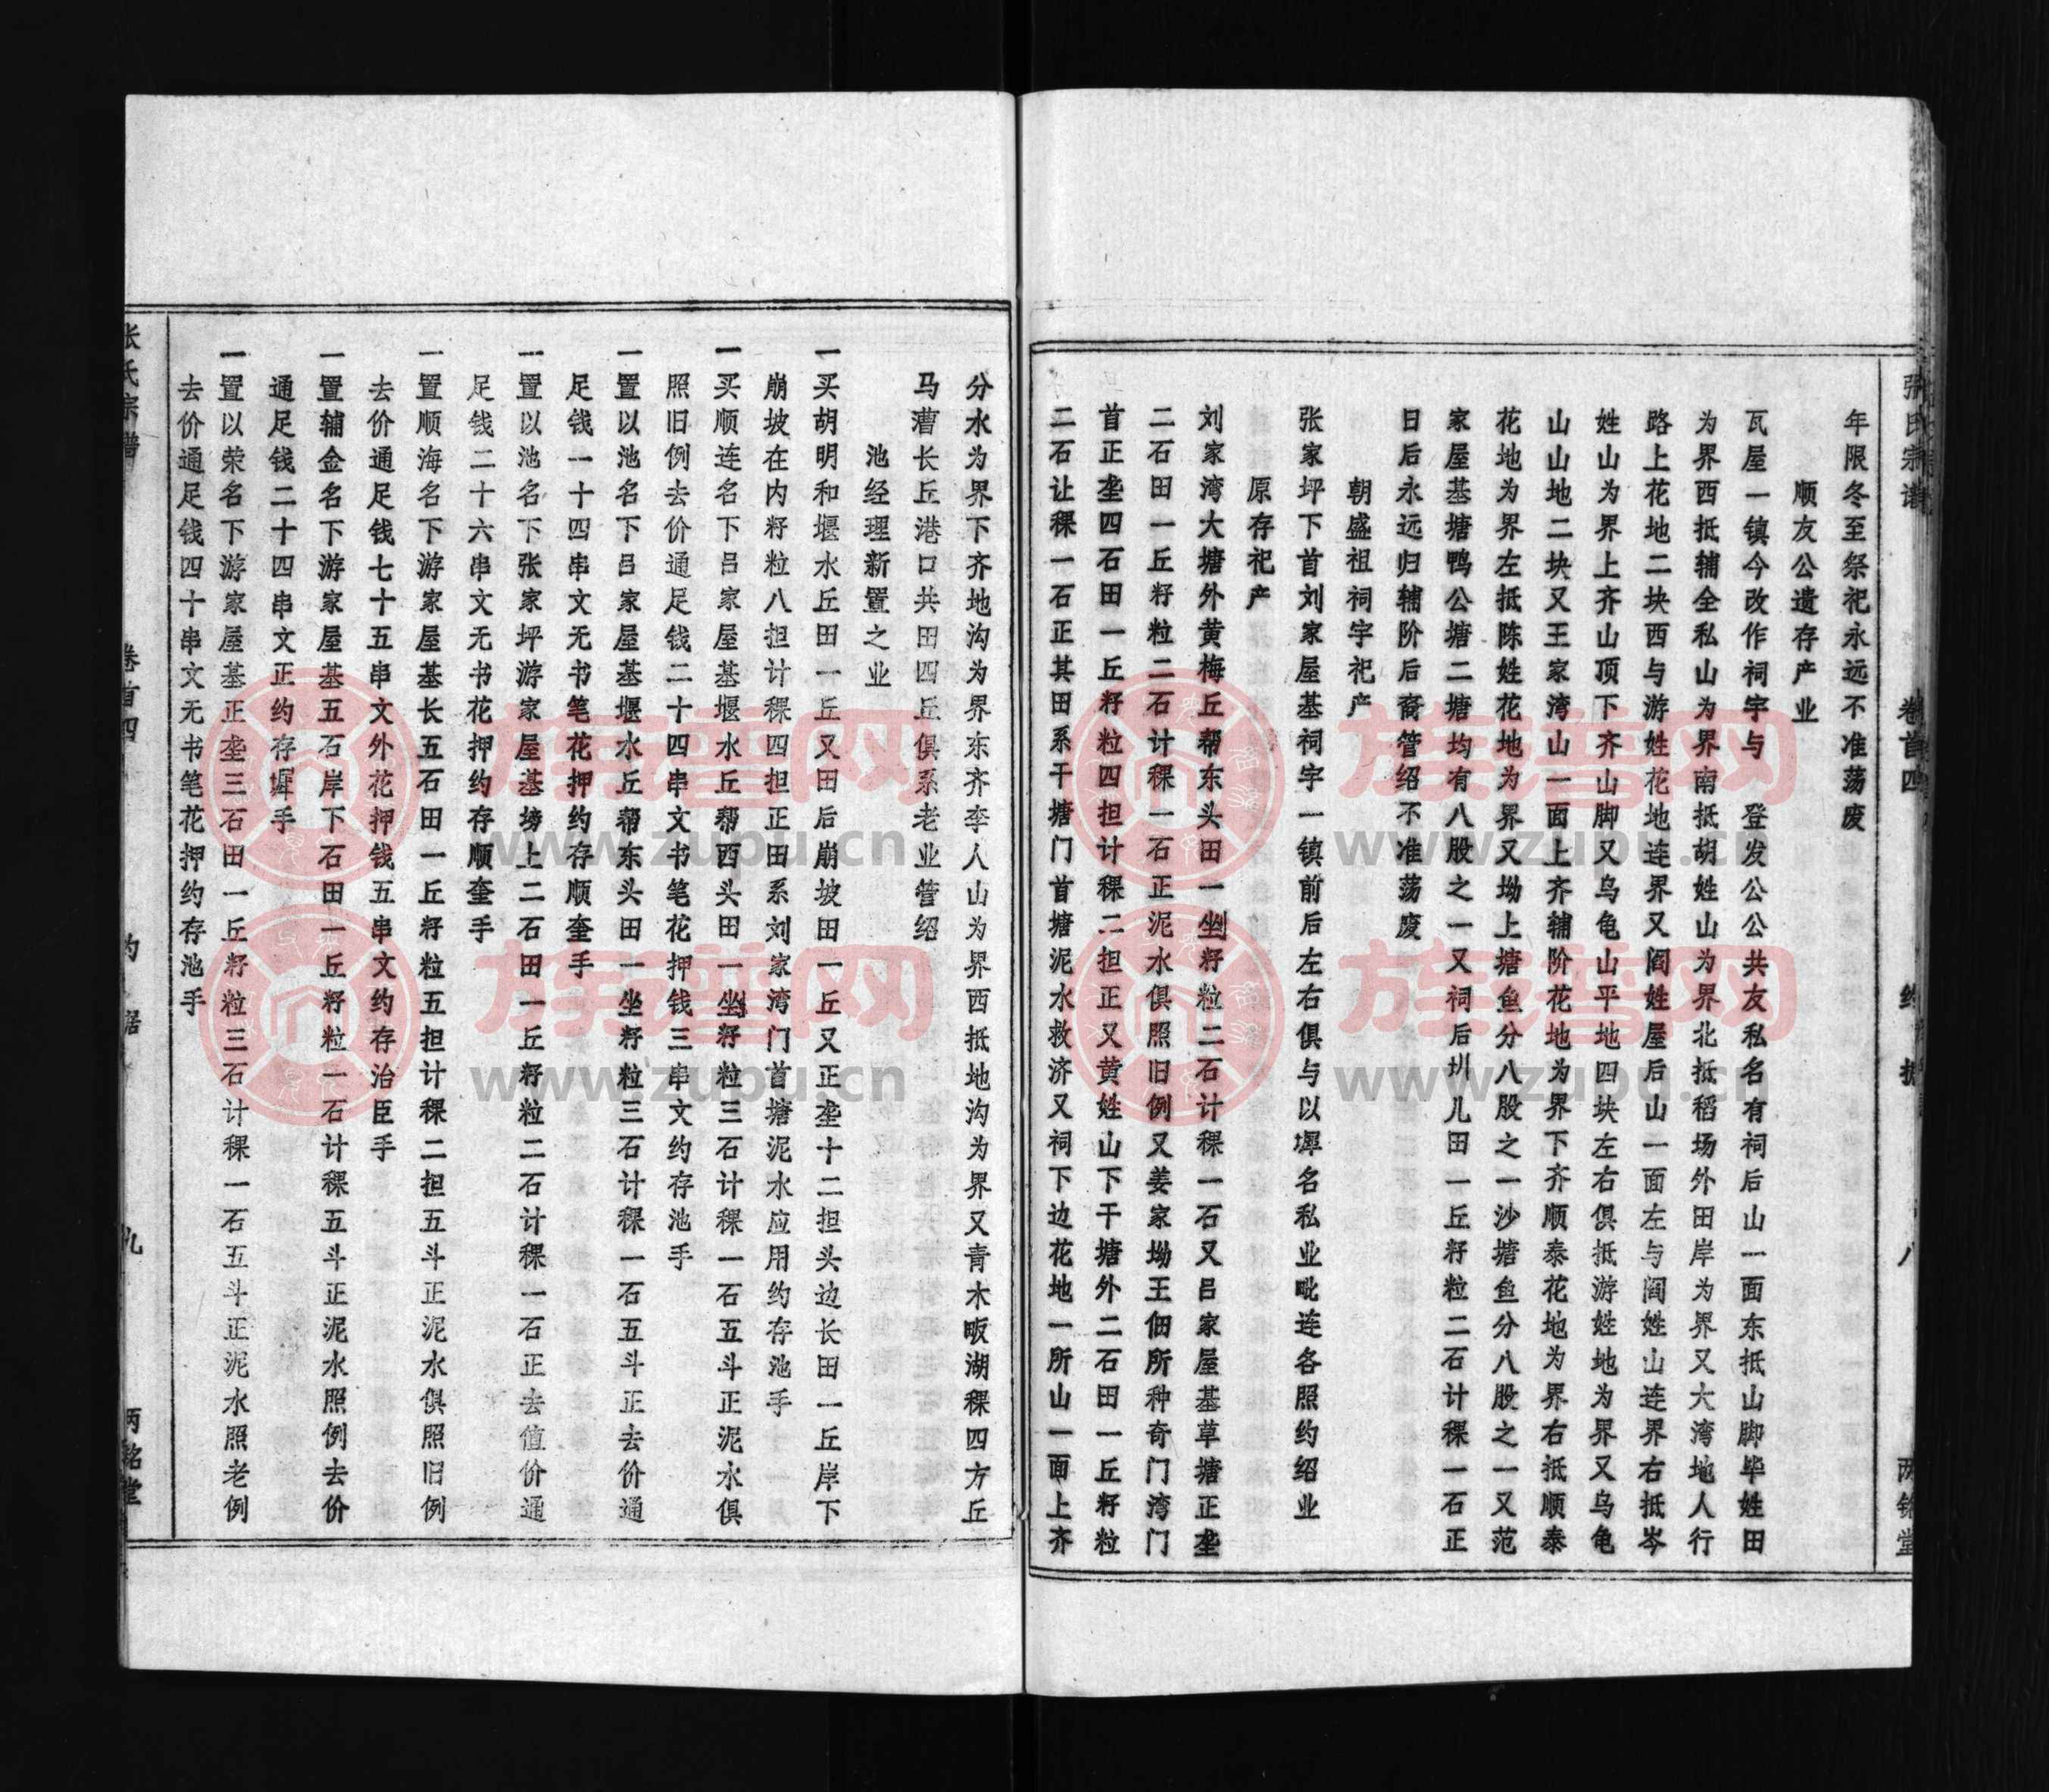 张氏宗谱 卷首四 约据 八 两铭堂
年限冬至祭祀永远不准荡废
顺友公遗存产业
瓦屋一镇今改作祠宇与 登发公公共友私名有祠后山一面东抵山脚毕姓田
为界西抵辅全私山为界南抵胡姓山为界北抵稻场外田岸为界又大湾地人行
路上花地二块西与游姓花地连界又阎姓屋后山一面左与阎姓山连界右抵岑
姓山为界上齐山顶下齐山脚又乌龟山平地四块左右俱抵游姓地为界又乌龟
山山地二块又王家湾山一面上齐辅阶花地为界下齐顺泰花地为界右抵顺泰
花地为界左抵陈姓花地为界又坳上塘鱼分八股之一沙塘鱼分八股之一又范
家屋基塘鸭公塘二塘均有八股之一又祠后圳儿田一丘籽粒二石计稞一石正
日后永远归辅阶后裔管绍不准荡废
朝盛祖祠宇祀产
张家坪下首刘家屋基祠宇一镇前后左右俱与以墀名私业毗连各照约绍业
原存祀产
刘家湾大塘外黄梅丘帮东头田一坐籽粒二石计稞一石又吕家屋基草塘正垄
二石田一丘籽粒二石计稞一石正泥水俱照旧例又姜家坳王佃所种奇门湾门
首正垄四石田一丘籽粒四担计稞二担正又黄姓山下干塘外二石田一丘籽粒
二石让稞一石正其田系干塘门首塘泥水救济又祠下边花地一所山一面上齐
分水为界下齐地沟为界东齐李人山为界西抵地沟为界又青木畈湖稞四方丘
马漕长丘港口共田四丘俱系老业管绍
池经理新置之业
一买胡明和堰水丘田一丘又田后崩坡田一丘又正垄十二担头边长田一丘岸下
崩坡在内籽粒八担计稞四担正田系刘家湾门首塘泥水应用约存池手
一买顺连名下吕家屋基堰水丘帮西头田一坐籽粒三石计稞一石五斗正泥水俱
照旧例去价通足钱二十四串文书笔花押钱三串文约存池手
一置以池名下吕家屋基堰水丘帮东头田一坐籽粒三石计稞一石五斗正去价通
足钱一十四串文无书笔花押约存顺奎手
一置以池名下张家坪游家屋基塝上二石田一丘籽粒二石计稞一石正去值价通
足钱二十六串文无书花押约存顺奎手
一置顺海名下游家屋基长五石田一丘籽粒五担计稞二担五斗正泥水俱照旧例
去价通足钱七十五串文外花押钱五串文约存治臣手
一置辅金名下游家屋基五石岸下石田一丘籽粒一石计稞五斗正泥水照例去价
通足钱二十四串文正约存墀手
一置以荣名下游家屋基正垄三石田一丘籽粒三石计稞一石五斗正泥水照老例
去价通足钱四十串文无书笔花押约存池手
张氏宗谱 卷首四 约据 九 两铭堂
族谱网
www.zupu.cn
族谱网
www.zupu.cn
族谱网
www.zupu.cn
族谱网
www.zupu.cn